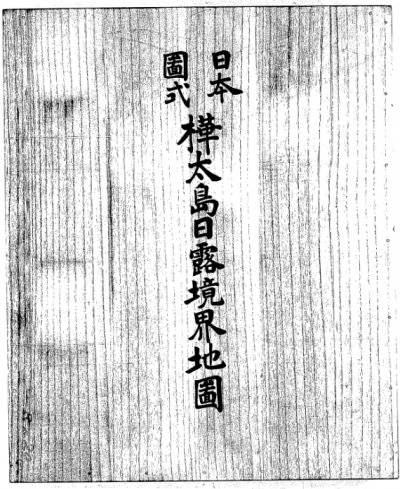 日本
圖式
樺太島日露境界地圖